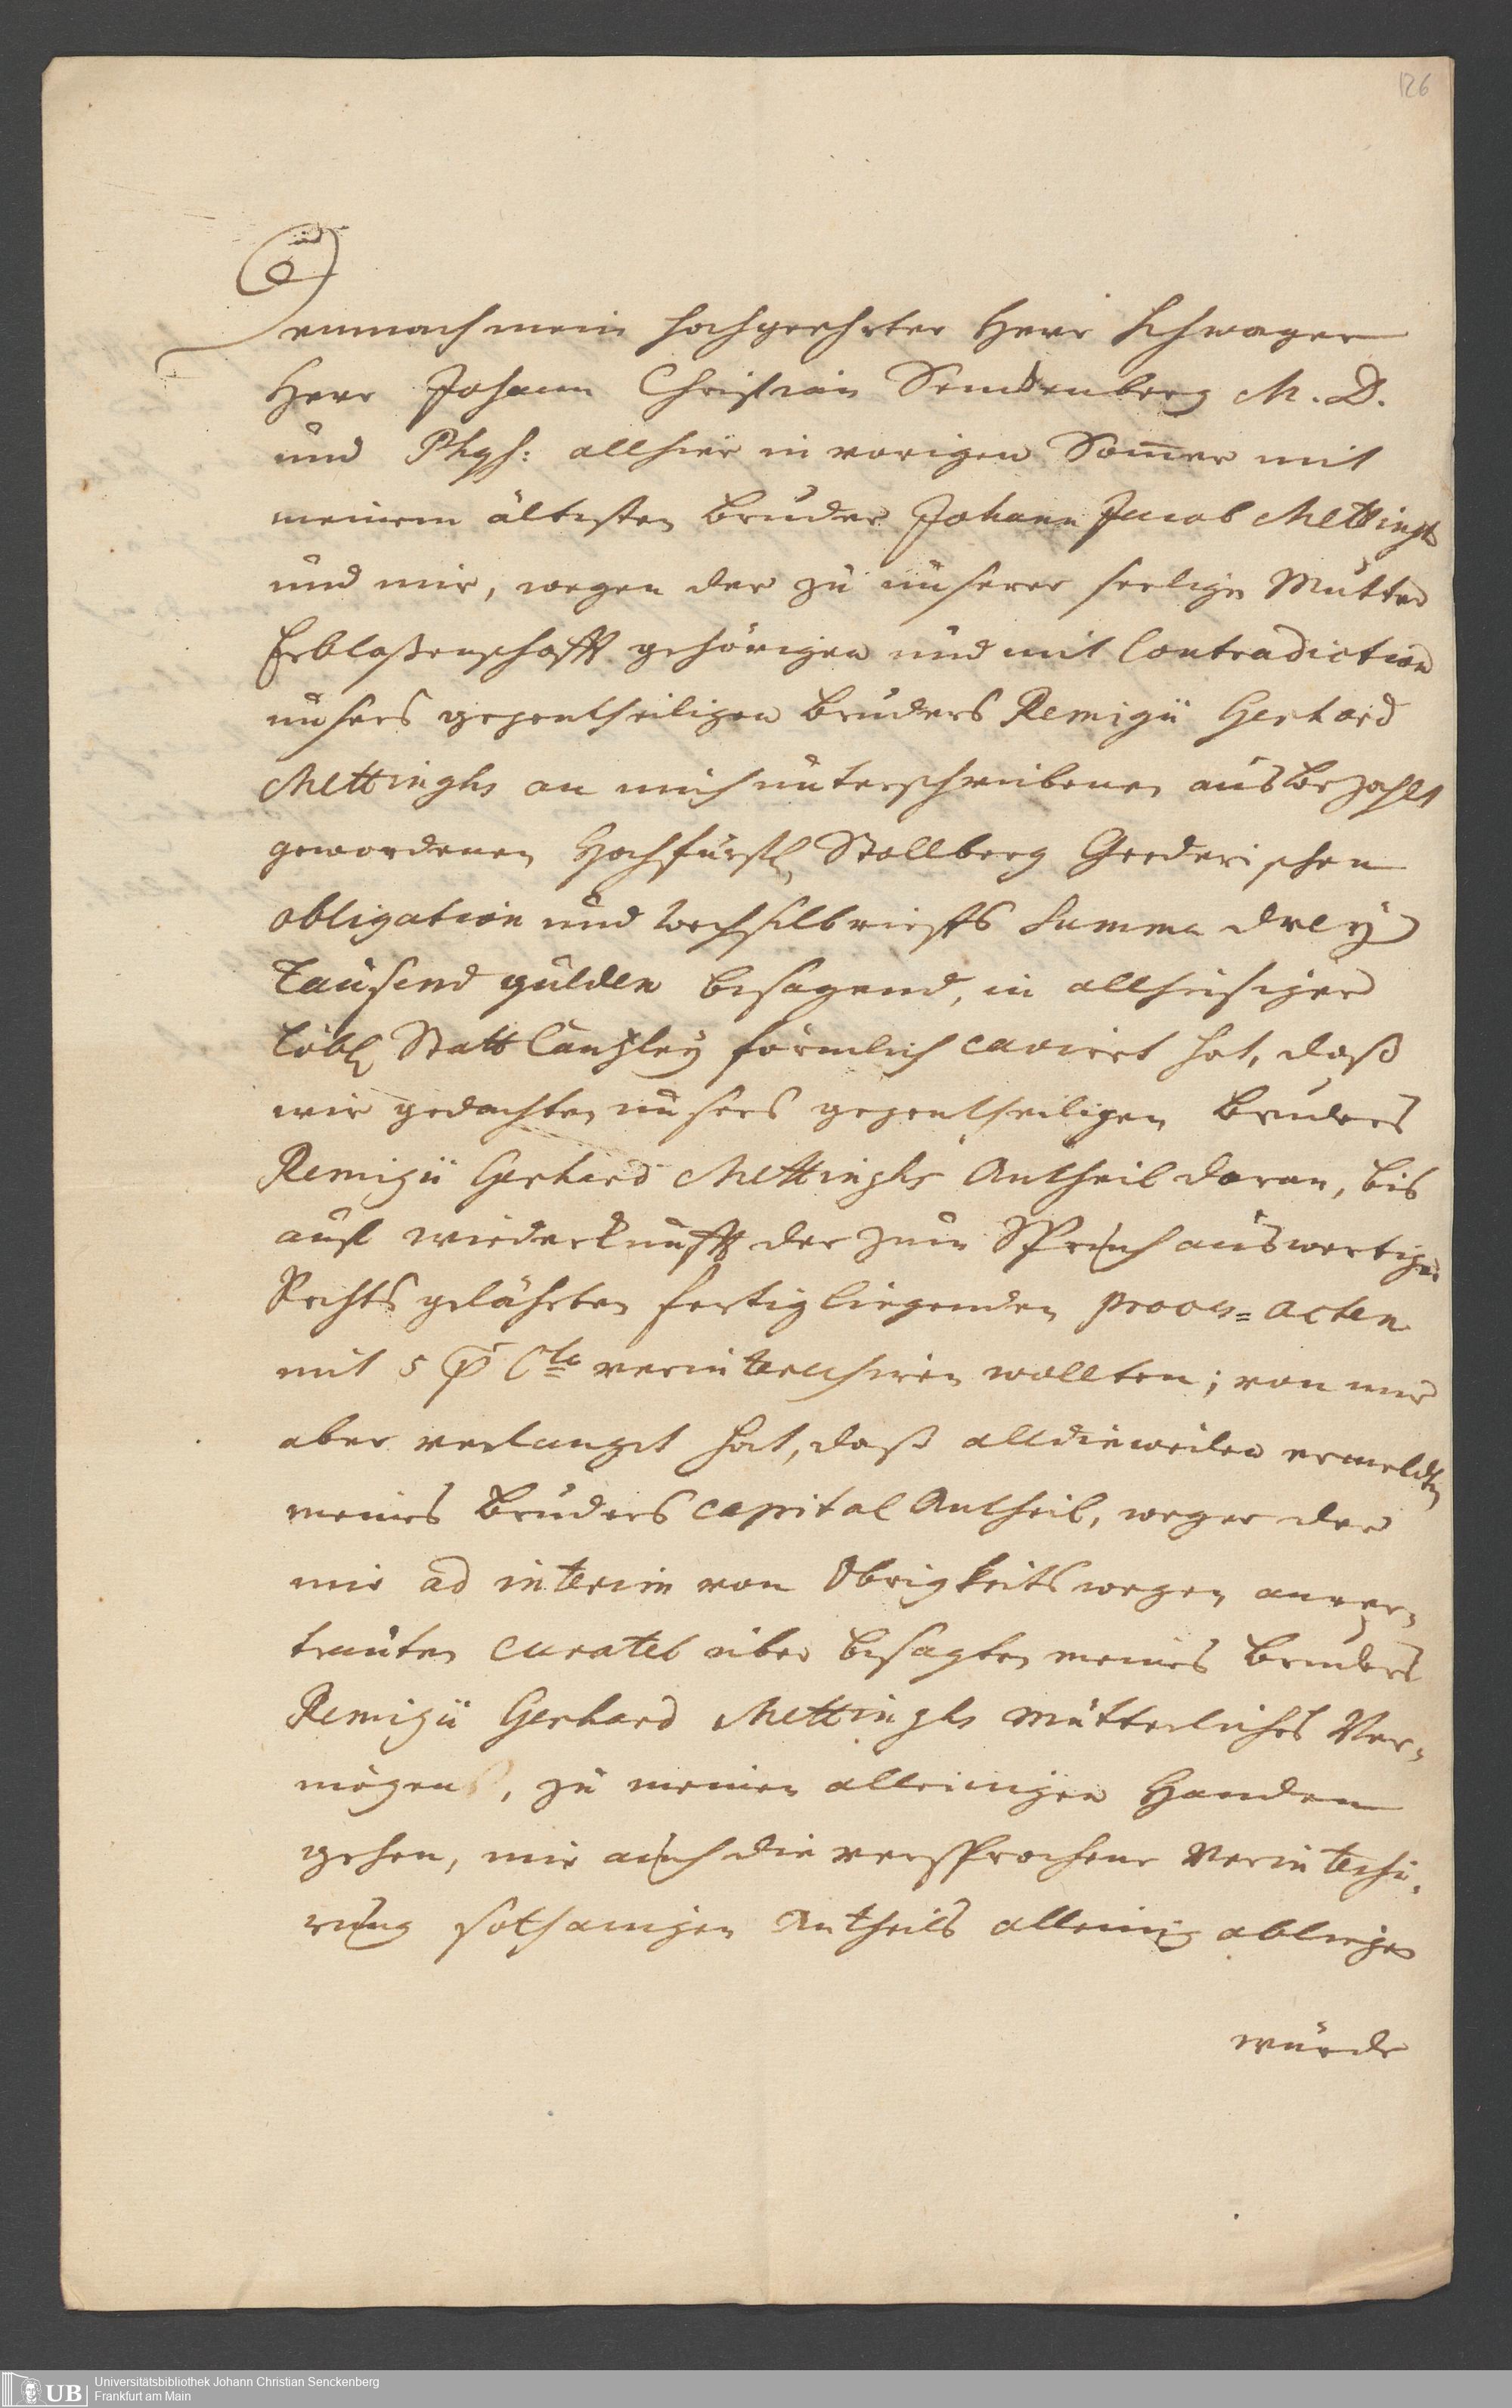 126
Demnach mein hochgeehrter Herr Schwager
Herr Johann Christian Senckenberg M. D.
und Phys: allhier in vorigen Som̅er mit
meinem ältesten Bruder Johann Jacob Mettingh
und mir, wegen der zu unserer seeligen Mutter
Erblaßenschafft gehörigen und mit Contradiction
unsers gegentheiligen Bruders Remigii Gerhard
Mettinghs an mich unterschriebenen ausbezahlt
gewordenen Hochfürstl. Stollberg Gederischen
obligation und Wechselbrieffs Summa drey
tausend gulden besagend, in allhiesiger
löbl Statt Canzley förmlich cavirt hat, daß
wir gedachten unsers gegentheiligen Bruders
Remigii Gerhard Mettinghs Antheil daran, bis
auf wiederkunfft der zum Spruch auswertiger
Rechts gelährten fertig liegenden process=acten
mit 5 p Cto verinteressiren wollten; von mir
aber verlanget hat, daß alldieweilen ermeldten
meines Bruders capital Antheil, wegen der
mir ad interim von Obrigkeits wegen anver-
trauten curatel über besagten meines Bruders
Remigii Gerhard Mettinghs mütterliches Ver-
mögen, zu meinen alleinigen Handen
gehen, mir auch die versprochene Verinteressi-
rung sothanigen Antheils alleinig obliegen
würde
UB
Universitätsbibliothek Johann Christian Senckenberg
Frankfurt am Main